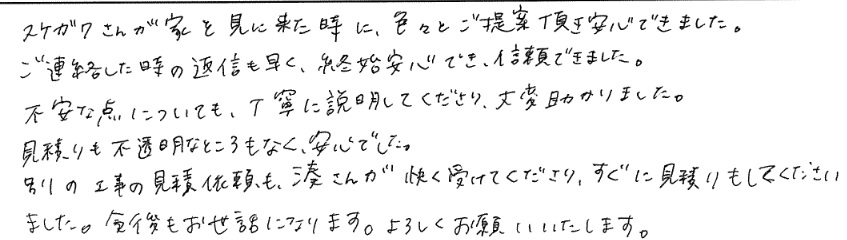 スケガワさんが家を見に来た時に、色々とご提案頂き安心できました。
ご連絡した時の返信も早く、終始安心でき、信頼できました。
不安な点についても、丁寧に説明してくださり、大変助かりました。
見積りも不透明なところもなく、安心でした。
別の工事の見積依頼も、湊さんが快く受けてくださり、すぐに見積りもしてください
ました。今後もお世話になります。よろしくお願いいたします。